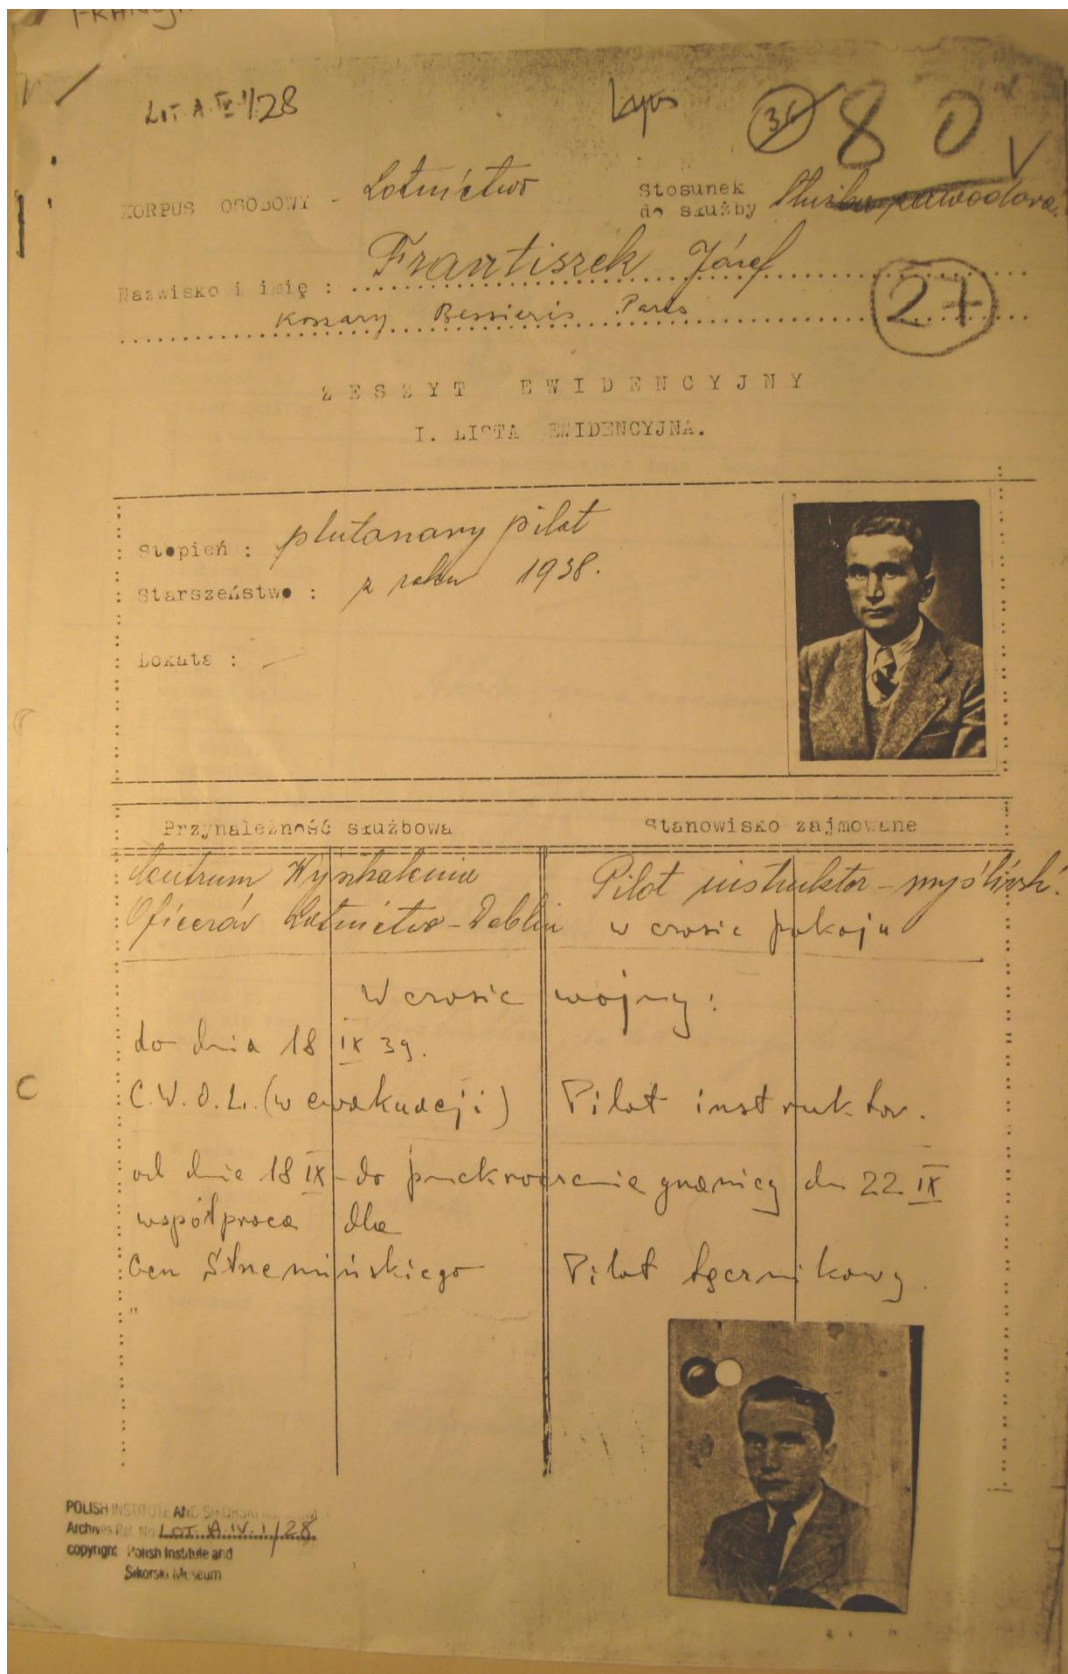 LOT. A. IV. 1/28
Lyon
36 80
KORPUS OSOBOWY - Lotnictwo Stosunek
do służby
Frantiszek Józef
Nazwisko i imię :
Koszary Bessieris Paris 27
ZESZYT EWIDENCYJNY
I. LISTA EWIDENCYJNA.
Stopień : plutonowy pilot
Starszeństwo : z roku 1938.
Lokata : —
Przynależność służbowa Stanowisko zajmowane
Centrum Wyszkolenia Pilot instruktor - myśliwsk.
Oficerów Lotnictwa - Deblin w czasie pokoju
W czasie wojny :
do dnia 18 IX 39.
C.W.O.L. (w ewakuacji) Pilot instruktor.
od dnia 18 IX - do przekroczenia granicy dn 22 IX
współpraca dla
Gen Strzemińskiego Pilot łącznikowy.
"
POLISH INSTITUTE AND SIKORSKI MUSEUM
Archives Ref. No LOT. A.IV. 1/28
copyright Polish Institute and
Sikorski Museum